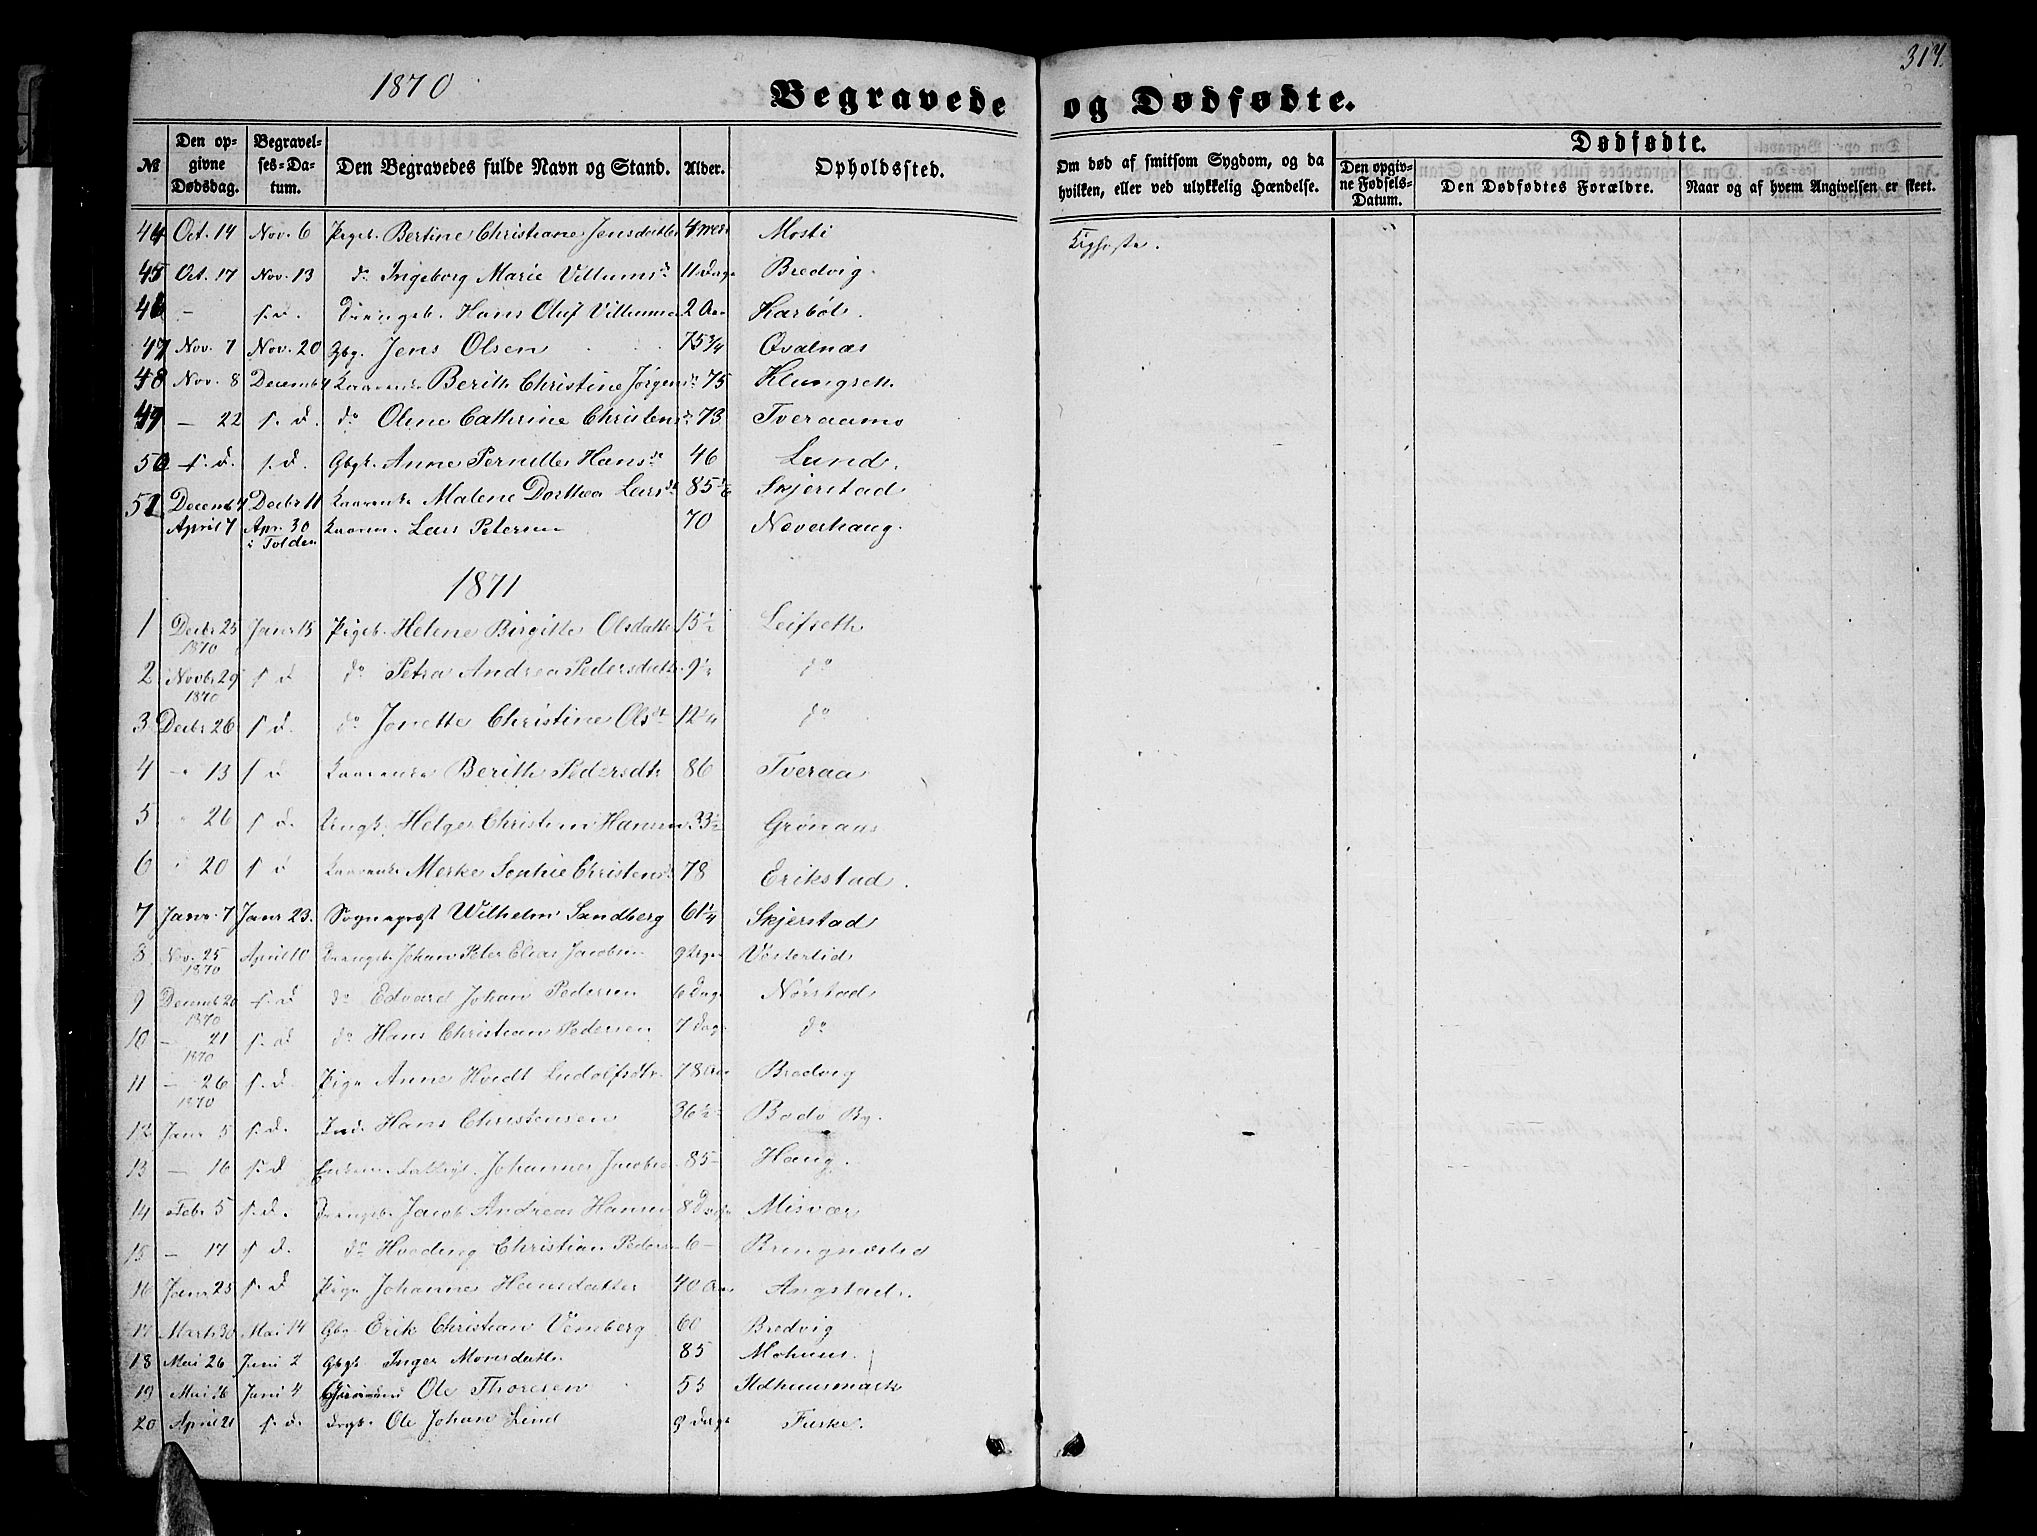 1870
Begravede og Dødfødte.
317.
Dødfødte.
№ Den opgivne Dødsdag. Begravelses-Datum. Den Begravedes fulde Navn og Stand. Alder. Opholdssted. Om død af smitsom Sygdom, og da hvilken, eller ved ulykkelig Hændelse. Den opgivne Fødsels-Datum. Den Dødfødtes Forældre. Naar og af hvem Angivelsen er skeet.
44 Oct. 14 Nov. 6 Pigeb. Bertine Christiane Jensdatter Mosti Kighoste.
45 Oct. 17 Nov. 13 do Ingeborg Marie Villums 11 Dage Bredvig.
46 - s. d. Drengeb. Hans Oluf Villumsen 2 Aar Karbøl.
47 Nov. 7 Nov. 20 Gbg. Jens Olsen 75 3/4 Qvalnæs
48 Nov. 8 Decemb 4 Berith Christine Jørgens 75 Klungseth
49 - 22 s. d. do Oline Cathrine Christens 73 Tveraamo
50 s. d. s. d. Gbgk. Anne Pernille Hansd 46 Lund.
51 Decemb 4 Decbr 11 Malene Dorthea Larsdt 85 1/2 Skjerstad
April 7 Apr. 30 i Folden Kaarm. Lars Petersen 70 Neverhaug.
1871
1 Decbr 25 1870 Janr 15 Pigeb. Helene Birgitte Olsdatter 15 1/2 Leifseth
2 Novbr 29 1870 s d do Petra Andrea Pedersdatter 9 1/2 do
3 Decbr 26 s d. do Jonette Christine Olsdt 12 1/4 do
4 " 13 s d Berith Pedersdtr 86 Tveraa
5 " 26 s d. Ungk. Helger Christian Hansen 33 1/2 Grønaas
6 " 20 s d Merke Sophie Christens 78 Erikstad.
7 Janr. 7 Janr 23. Sognepræst Wilhelm Sandberg 61 1/4 Skjerstad
8 Nov. 25 1870 April 10 Drengeb. Johan Peter Elias Jacobsen 9 Dage Vesterlid
9 Decemb 20 1870 s. d do Edvard Johan Pedersen 6 Dage Nørstad
10 - 21 1870 s. d do Hans Christian Pedersen 7 Dage do
11 - 26 1870 s. d. Pige Anne Hvidt Ludolfsdtr 78 Aar Bredvig
12 Janr 5 s. d. Ind. Hans Christensen 36 1/2 Bodø By.
13 - 16 s. d Johannes Jacobsen 85 Haug.
14 Febr 5 s. d. Drengeb. Jacob Andreas Hansen 8 Dage Misvær
15 - 17 s d. do Hveding Christian Pedersen 6 - Bringnæslid
16 Janr 25 s. d Pige Johanne Hansdatter 40 Aar Angstad.
17 Marts 30 Mai 14 Gbg. Erik Christian Venberg 60 Bredvig
18 Mai 26 Juni 2 Gbgk. Inger Monsdatter 85 Mohuus.
19 Mai 16 Juni 4 Ole Thoresen 55 Ildhuusmark
20 April 21 s. d. Drgb. Ole Johan Lind 9 Dage Fuske.